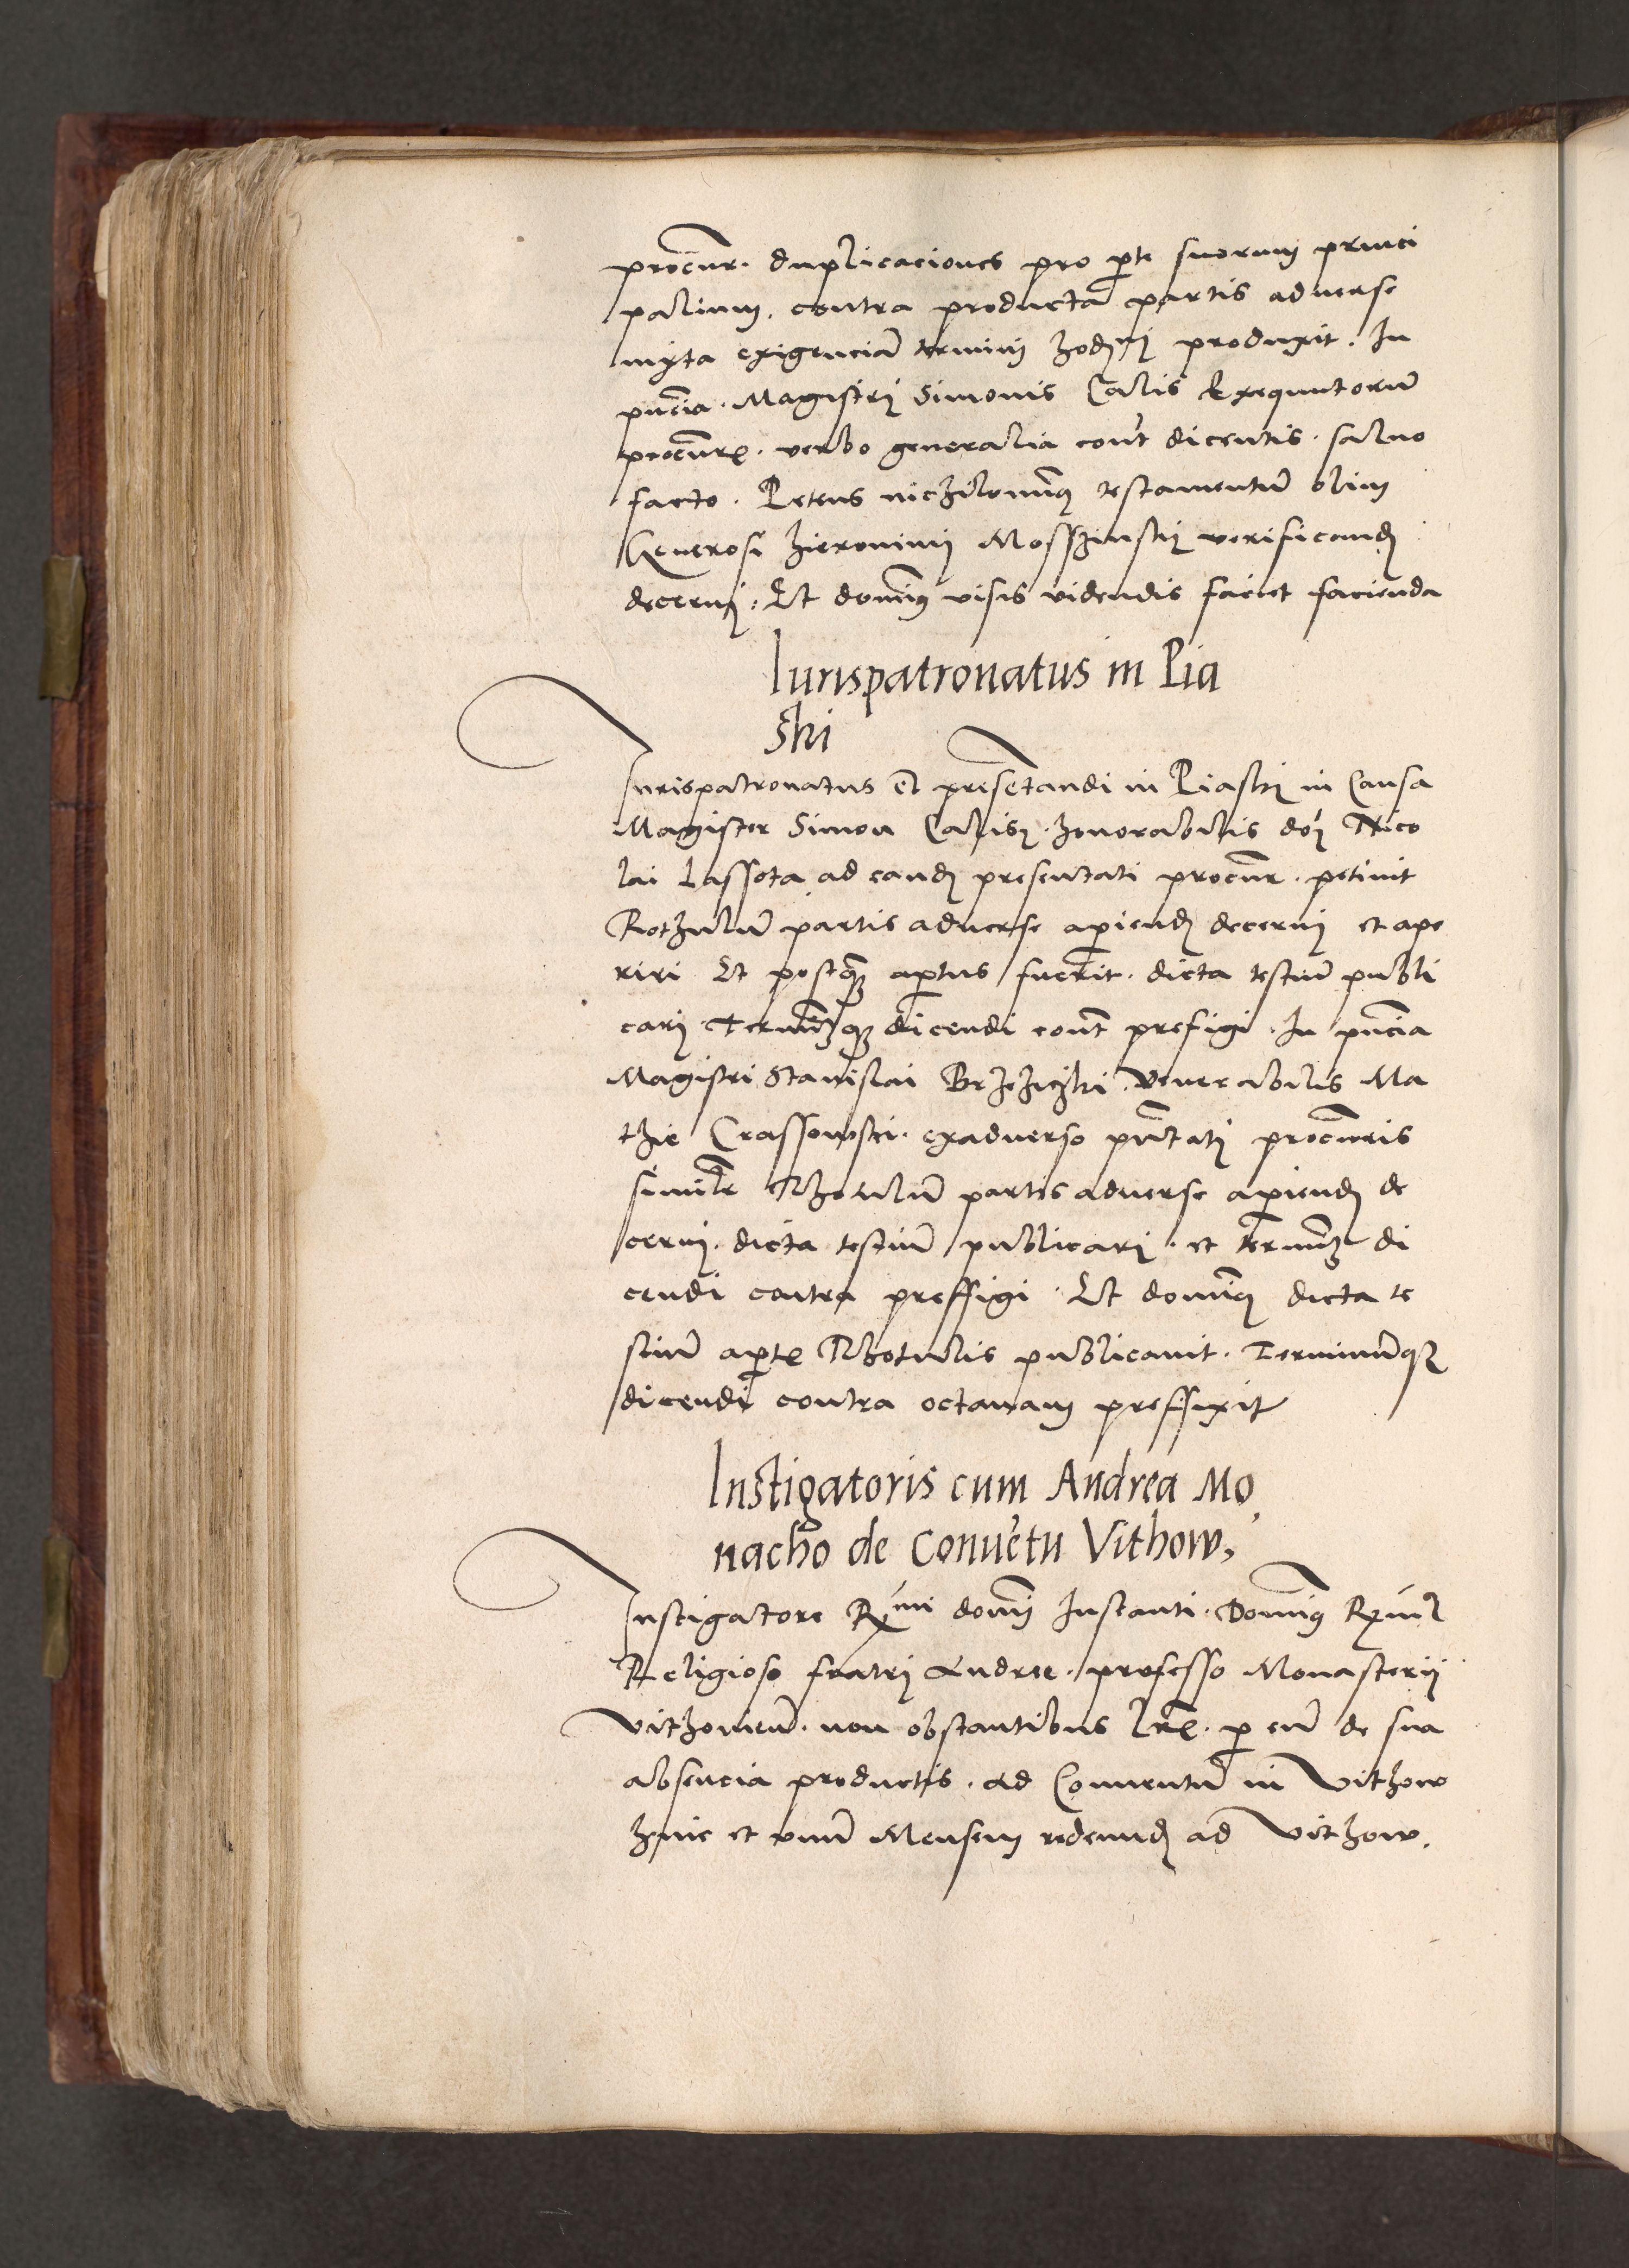 procur. duplicaciones pro pte suorum princi
palium. contra producta partis adverse
iuxta exigenciā termini hodierni produxit. In
pn̄cia. Magistri Simonis Calis Exequutorū
procur. verbo generalia cont dicentis. salvo
facto. Petens nichilominus testamentū olim
Generosi Hieronimi Mosszinskii verificand
decerni. Et dominus visis videndis faciet facienda
Iurispatronatus in Pia
ski
Iurispatronatus et presētandi in Piaski in Causa
Magister Simon Calis. honorabilis doi Nico
lai Lassota ad eand presentati procur. petivit
Rothulū partis adverse apiend decerni et ape
riri Et postq̄ aptus fuerit. dicta testiū publi
cari. Terminūq dicendi cont prefigi. In pn̄cia
Magistri Stanislai Brzeziczki. venerabilis Ma
thie Crassowski. exadverso pn̄tati procuris
similr Rhotulū partis adverse apiend de
cerni. dicta testiū publicari. et terminū di
cendi contra preffigi. Et dominus dicta te
stiū apte Rhotulis publicavit. Terminumq
dicendi contra octavam preffixit
Instigatoris cum Andrea Mo
nacho de Convētu Vithow,
Instigatore Rmi domi Instanti. Dominus Rmus
Religioso fratri Andree. professo Monasterii
Vithovien. non obstantibus lris. p eū de sua
absencia productis. ad Conventū in Vithow
hinc et unū Mensem redeund ad Vithow.